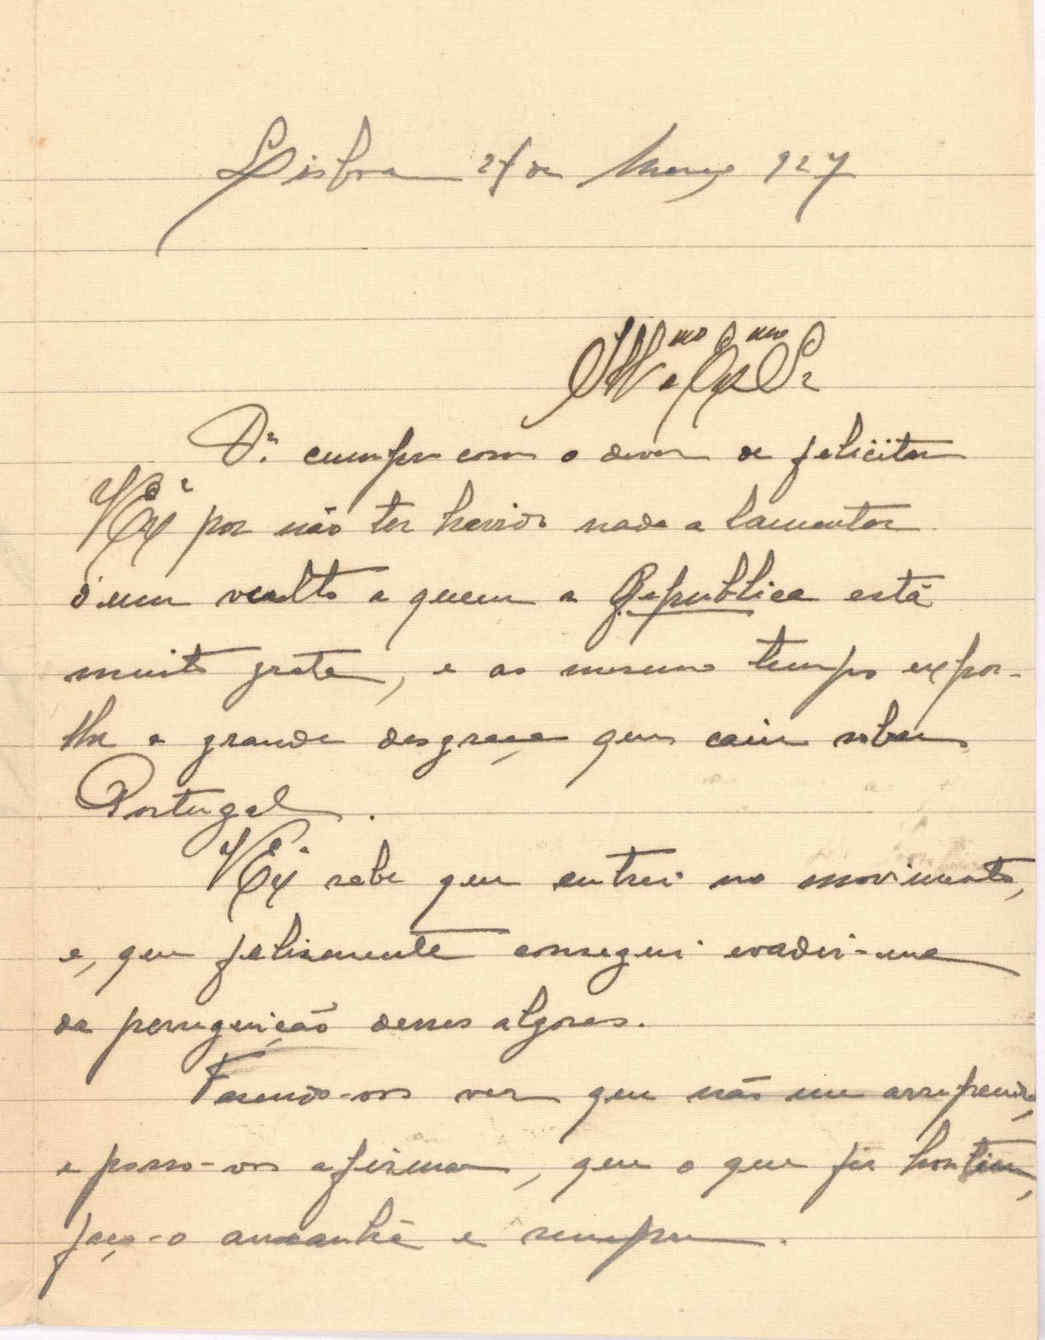 Lisboa 27 de Março 927
Ill.mo e Ex.mo Sr
Dr. cumpro com o dever de felicitar
V Exª por não ter havido nada a lamentar
d'um vulto a quem a Republica está
muito grata, e ao mesmo tempo expor-
lhe a grande desgraça que caiu sobre
Portugal.
V Exª sabe que entrei no movimento,
e, que felismente consegui evadir-me
da perseguição desses algozes.
Fasendo-vos ver que não me arrependo,
e posso-vos afirmar, que o que fiz hontem,
faço-o amanhã e sempre.